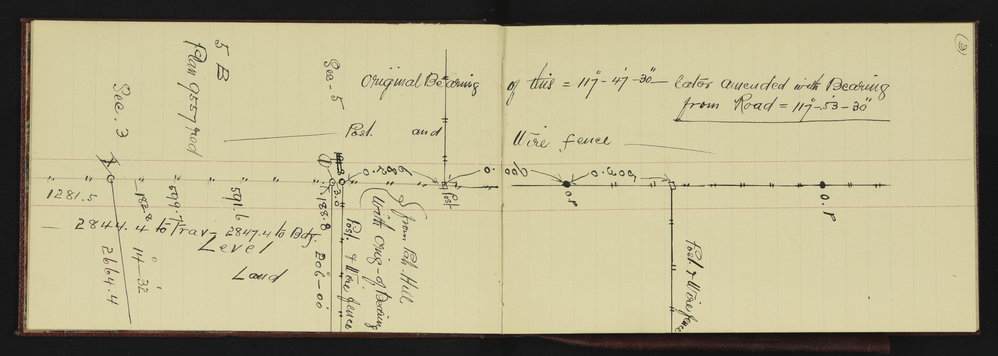 (3)
Original Bearing of this = 117°-47'-30" later amended with Bearing
from Road = 117°-53'-30"
Post and Wire fence
5 B
Plan 9557 red
Sec. 3
Sec - 5
1281.5
182.8
599.7
591.6
188.8
0.300
O.P
O.P
Post
2844.4 to Trav - 2847.4 to Bdy.
Level
Land
14°-32'
2664.4
206°-00'
Post & Wire fence
(With Orig- of Bearing
from Puk. Hill
Post & Wire fence